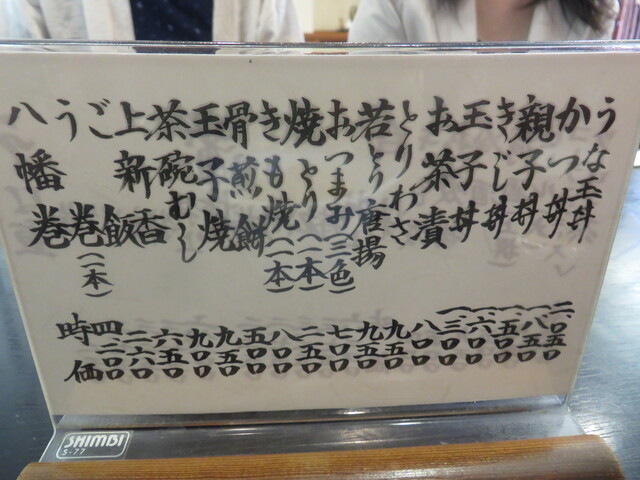 うな玉丼 二〇五〇
かつ丼 一八五〇
親子丼 一五五〇
きじ丼 一六〇〇
玉子丼 一三〇〇
お茶漬 八〇〇
とりわさ 九五〇
若とり唐揚 九五〇
おつまみ(三色) 七〇〇
焼とり(一本) 二五〇
きも焼(一本) 八〇〇
骨煎餅 五〇〇
玉子焼 九五〇
茶碗むし 九〇〇
上新香 六五〇
ご飯 二六〇
う巻(一本) 四二〇〇
八幡巻 時価
SHIMBI
S-77